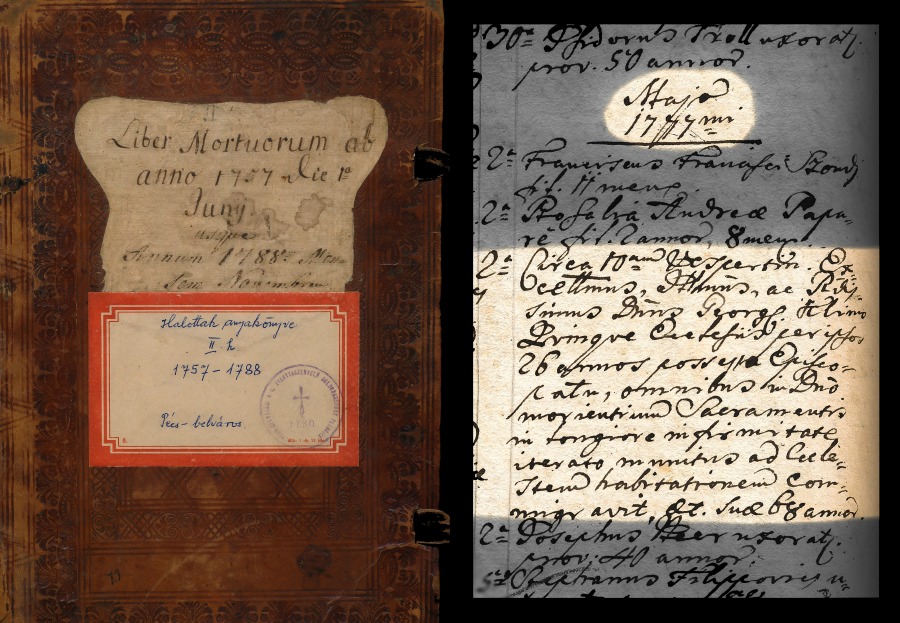 Liber Mortuorum ab
anno 1757 Die 1ª
Junij
usque
Annum 1788um Men-
sem Novembrem
Halottak anyakönyve
II. k
1757-1788
Pécs-belváros
30ª Isidorus Troll uxorat.
prov. 50 annor.
Majo
1777mi
2ª Franciscus Francisci
fil. 11 mens.
2ª Rosalia Andreæ Papa-
re fil. 2 annor, 8 mens.
2ª Circa 10am Vespertin. Ex-
cellmus, Illmus, ac Rdis-
simus Dnus Georg. Klimo
Quinque Ecclesiis per ipsos
26 annos possesso Episco-
patu, omnibus in Dno
morientium Sacramentis
in longiore infirmitate
iterato munitus ad Cœle-
stem habitationem com-
migravit, Æt. suæ 68 annor.
2ª Josephus uxorat.
prov. 40 annor.
Stephanus Filippovics u-